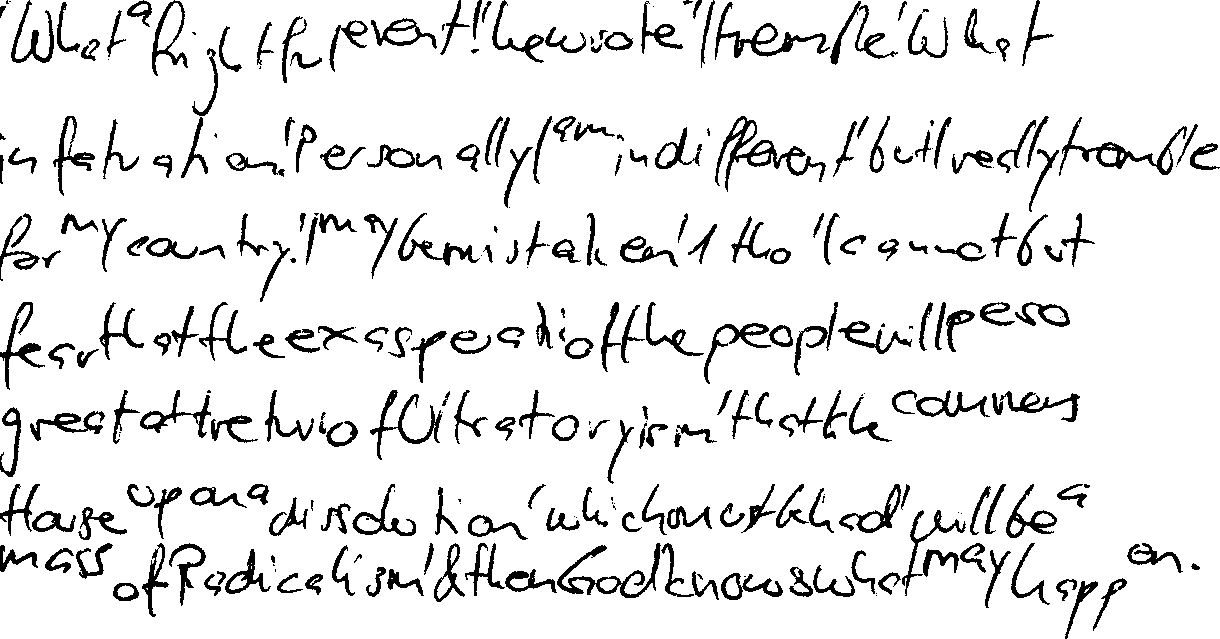 "What a frightful event!" he wrote "I tremble! What
infatuation! Personally I am indifferent' but I really tremble
for my country! I may be mistaken' 1 tho' I cannot but
fear that the exasperatio of the people will be so
great at the return of Ultra toryism' that the commens
House upon a dissolution' which must be had' will be a
mass of Radicalism' & then God knows what may happen.